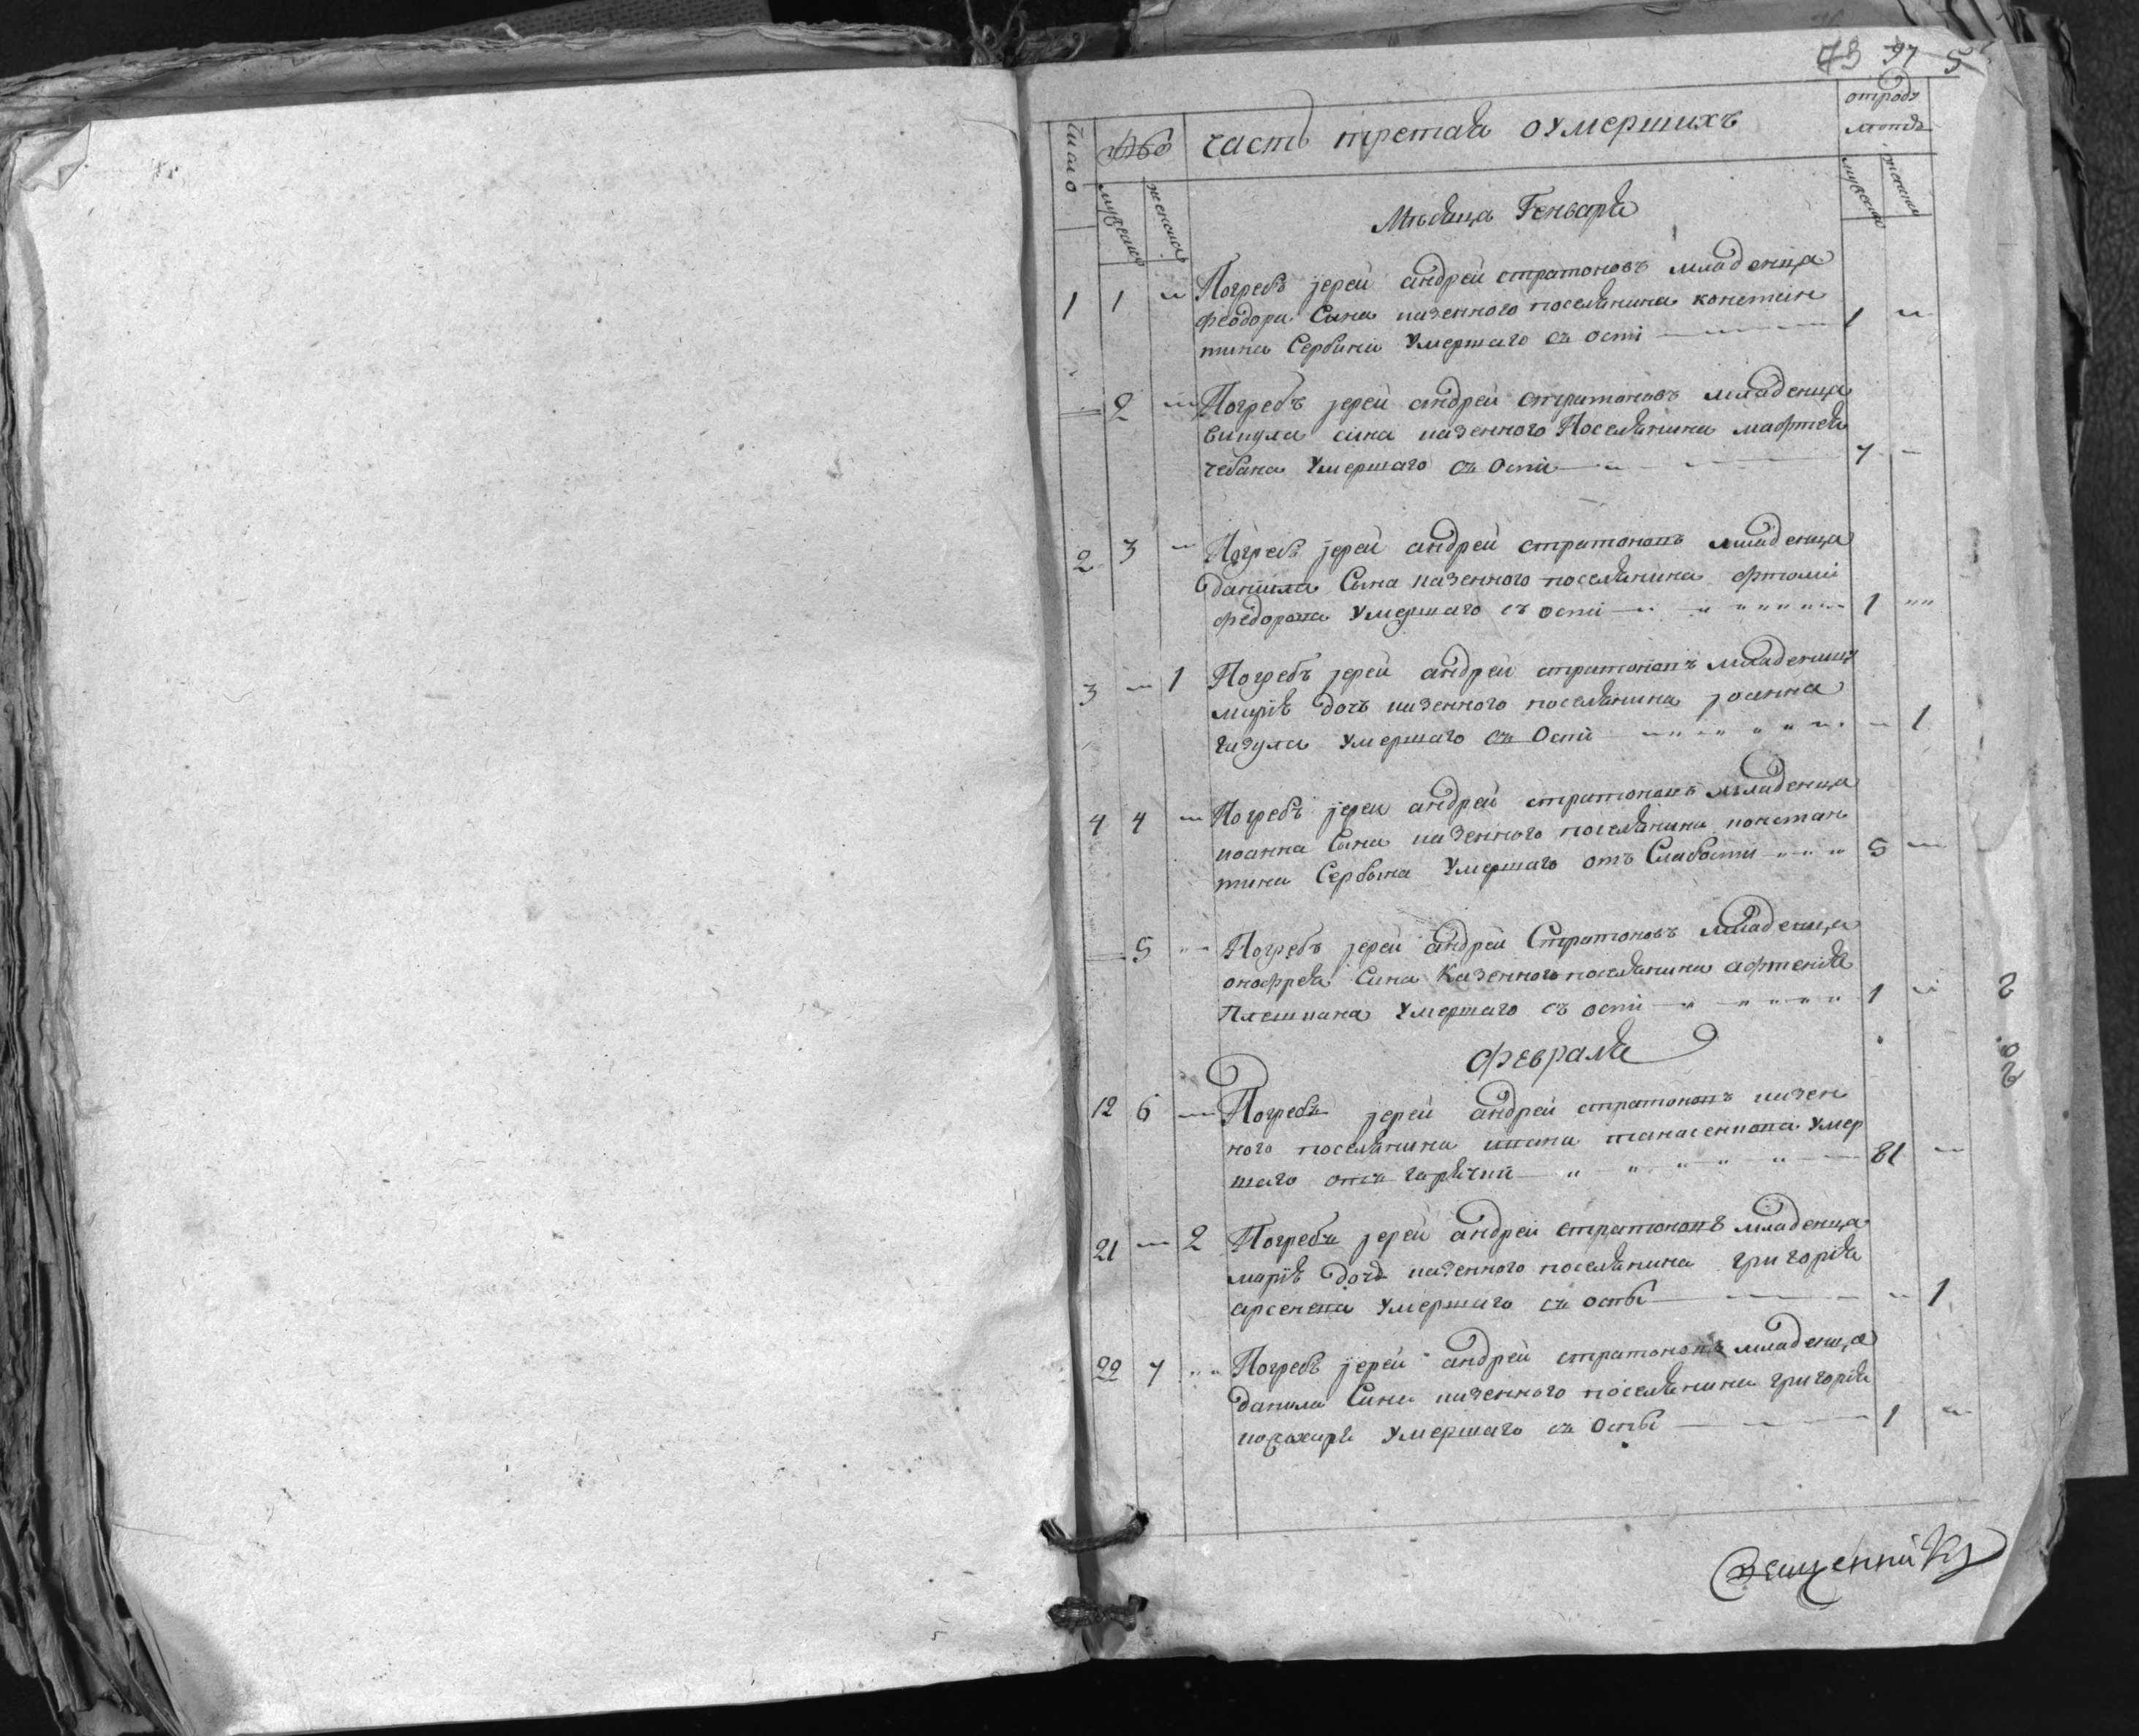 73 97 5
число
часть третая оумершихъ
отроду
летъ
мужеска
женска
мужеска
женска
Мѣсяца Генваря
1 1 Погребъ јерей андрей стратоновъ младенца
феодора Сына казенного поселянина констан
тина Сербина Умершаго съ оспи 1
2 Погребъ јерей андрей стратоновъ младенца
сина казенного Поселянина мафтея
чебана Умершаго съ Оспи 7
2 3 Погребъ јерей андрей стратоновъ младенца
даниила Сына казенного поселянина
федорова Умершаго съ оспи 1
3 1 Погребъ јерей андрей стратоновъ младеницу
марїѣ дочъ казенного поселянина јоанна
Умершаго съ Оспи 1
4 4 Погребъ јереи андрей стратоновъ младенца
иоанна Сына казенного поселянина констан
тина Сербина Умершаго отъ Слабости 5
5 Погребъ јерей андрей Стратоновъ младенца
онофрея Сина Казенного поселянина афтения
Умершаго съ оспи 1
февраля
12 6 Погребъ јерей андрей стратоновъ казен
ного поселянина ивана Умер
шаго отъ гарячки 81
21 2 Погребъ јерей андрей стратоновъ младенца
марїѣ дочъ казенного поселянина григорїя
арсенева Умершаго съ оспы 1
22 7 Погребъ јерей андрей стратоновъ младенца
данила Сина казенного поселянина григорїя
Умершаго съ Оспы 1
Священникъ